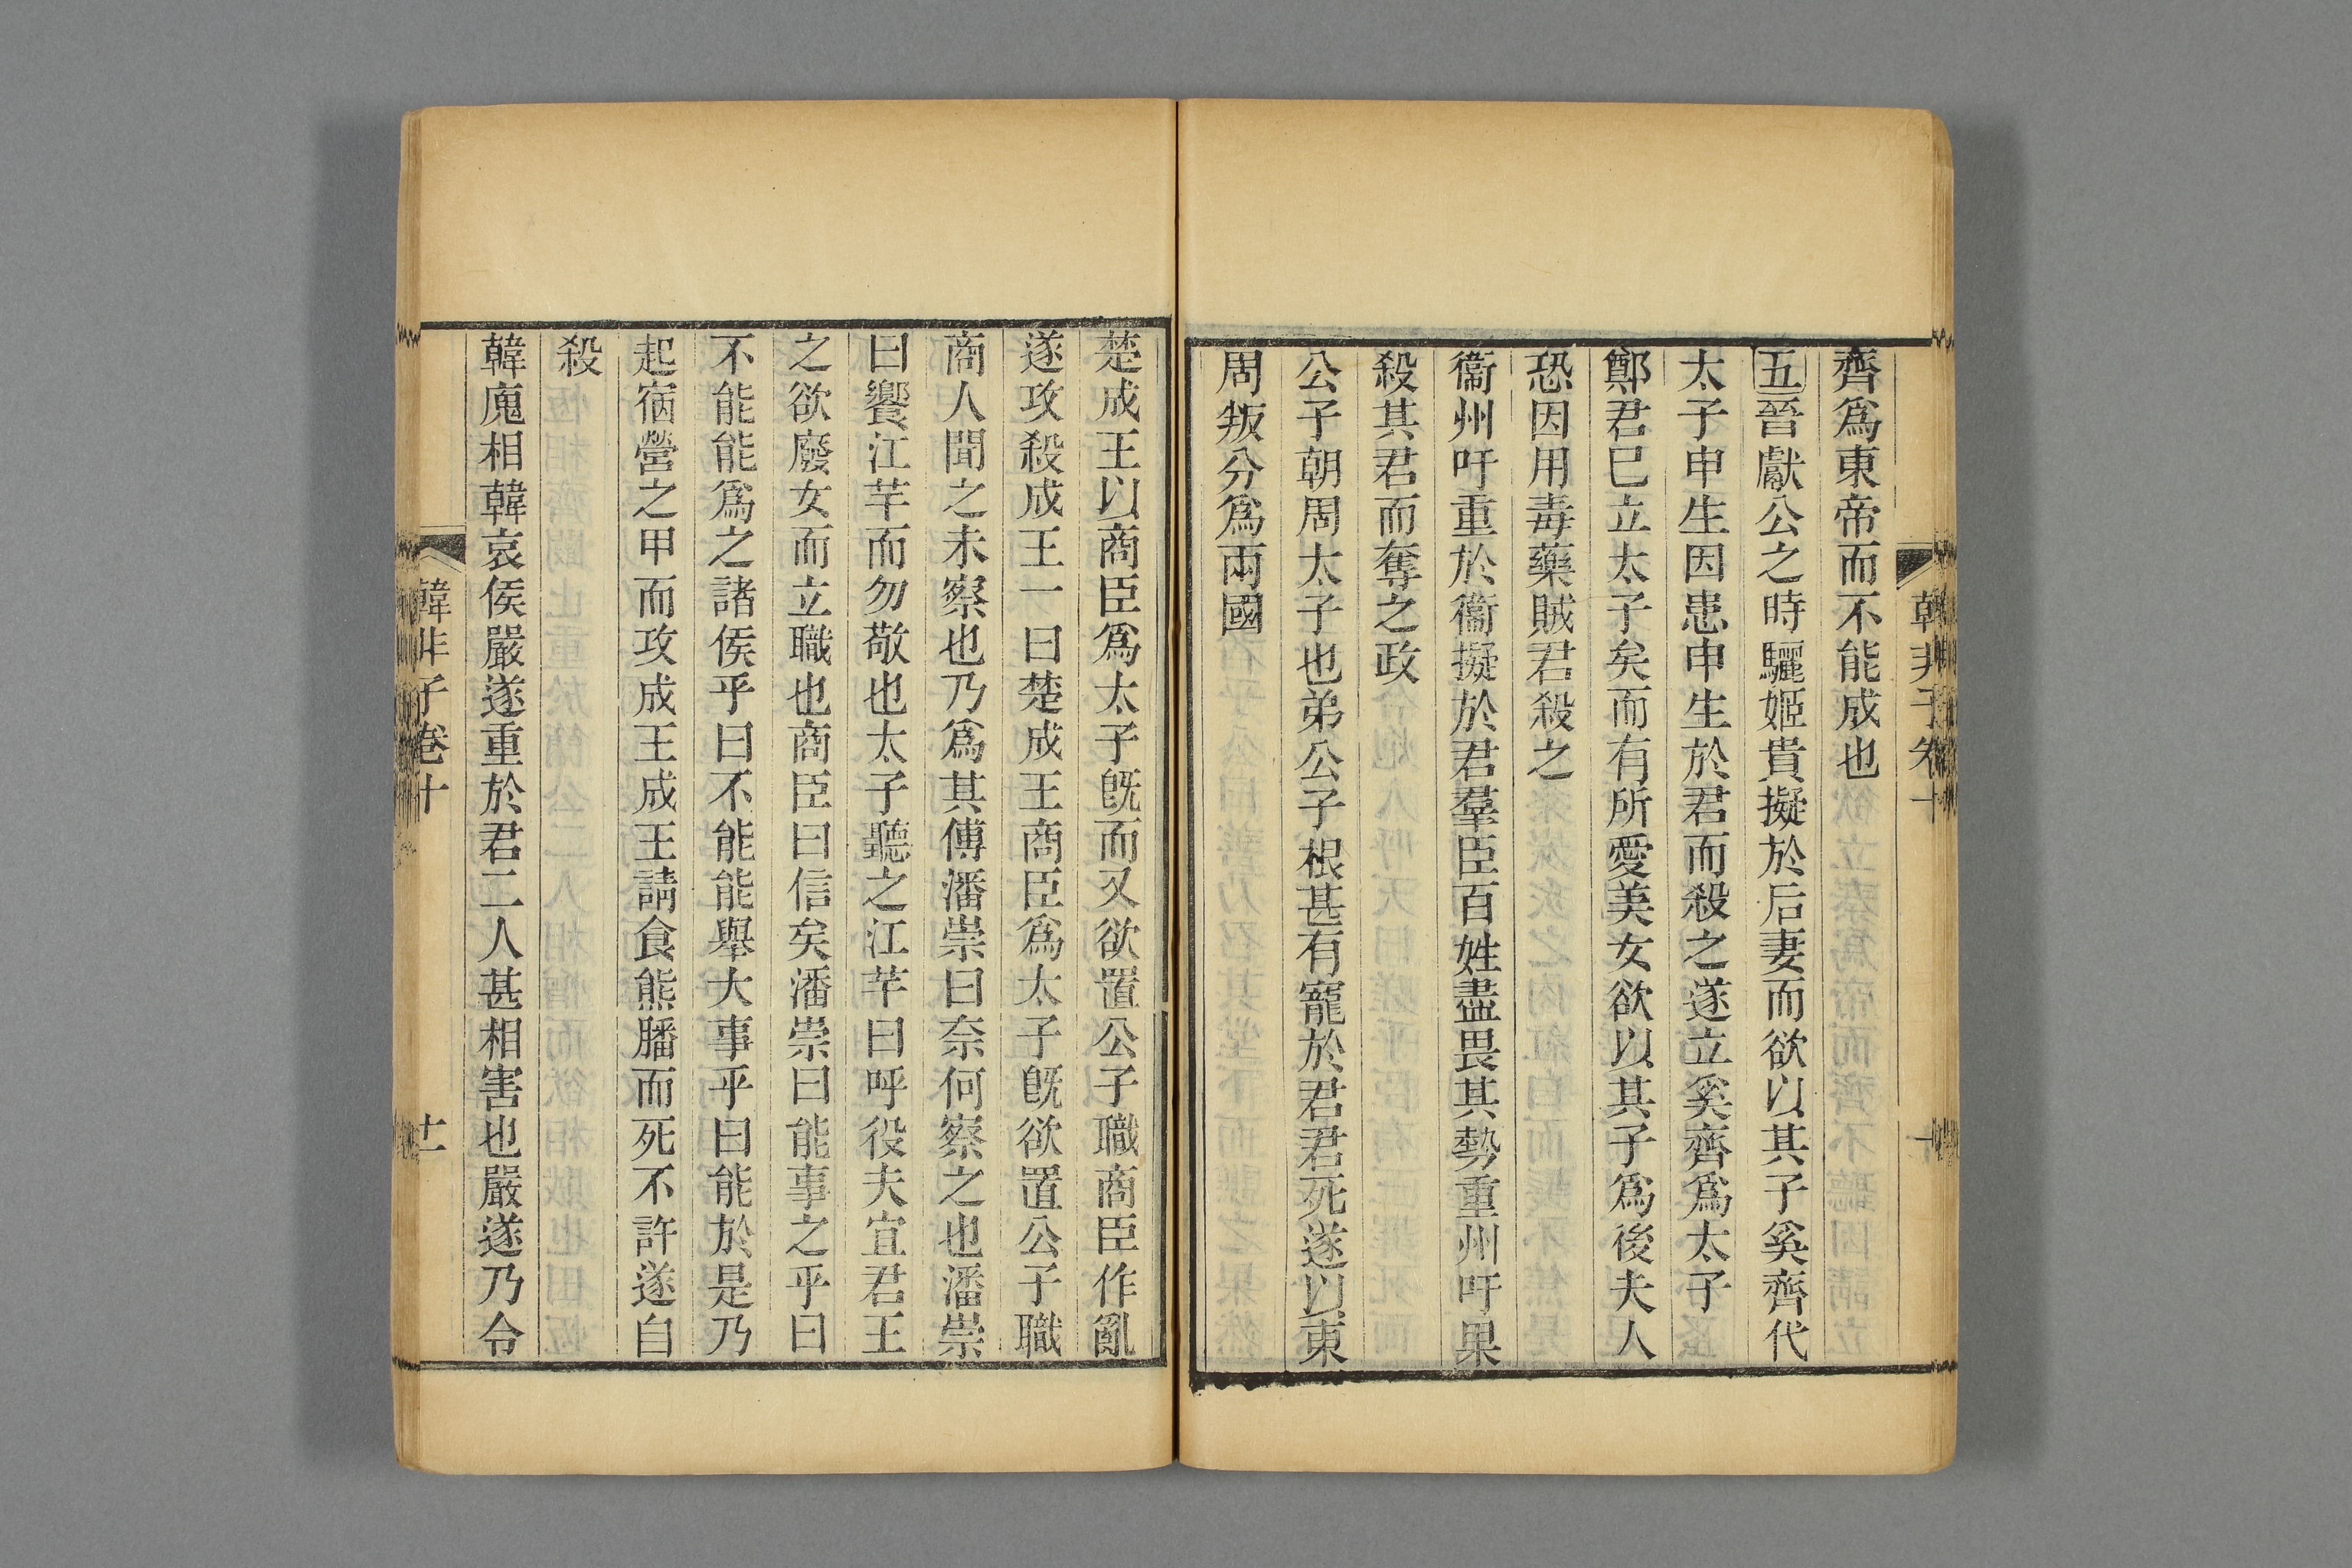 韓非子卷十
齊爲東帝而不能成也
五晉獻公之時驪姬貴擬於后妻而欲以其子奚齊代
太子申生因患申生於君而殺之遂立奚齊爲太子
鄭君已立太子矣而有所愛美女欲以其子爲後夫人
恐因用毒藥賊君殺之
衞州吁重於衞擬於君羣臣百姓盡畏其勢重州吁果
殺其君而奪之政
公子朝周太子也弟公子根甚有寵於君君死遂以東
周叛分爲兩國
楚成王以商臣爲太子旣而又欲置公子職商臣作亂
遂攻殺成王一曰楚成王商臣爲太子旣欲置公子職
商人聞之未察也乃爲其傅潘崇曰奈何察之也潘崇
曰饗江芊而勿敬也太子聽之江芊曰呼役夫宜君王
之欲廢女而立職也商臣曰信矣潘崇曰能事之乎曰
不能能爲之諸侯乎曰不能能舉大事乎曰能於是乃
起宿營之甲而攻成王成王請食熊膰而死不許遂自
殺
韓廆相韓哀侯嚴遂重於君二人甚相害也嚴遂乃令
韓非子卷十
十一